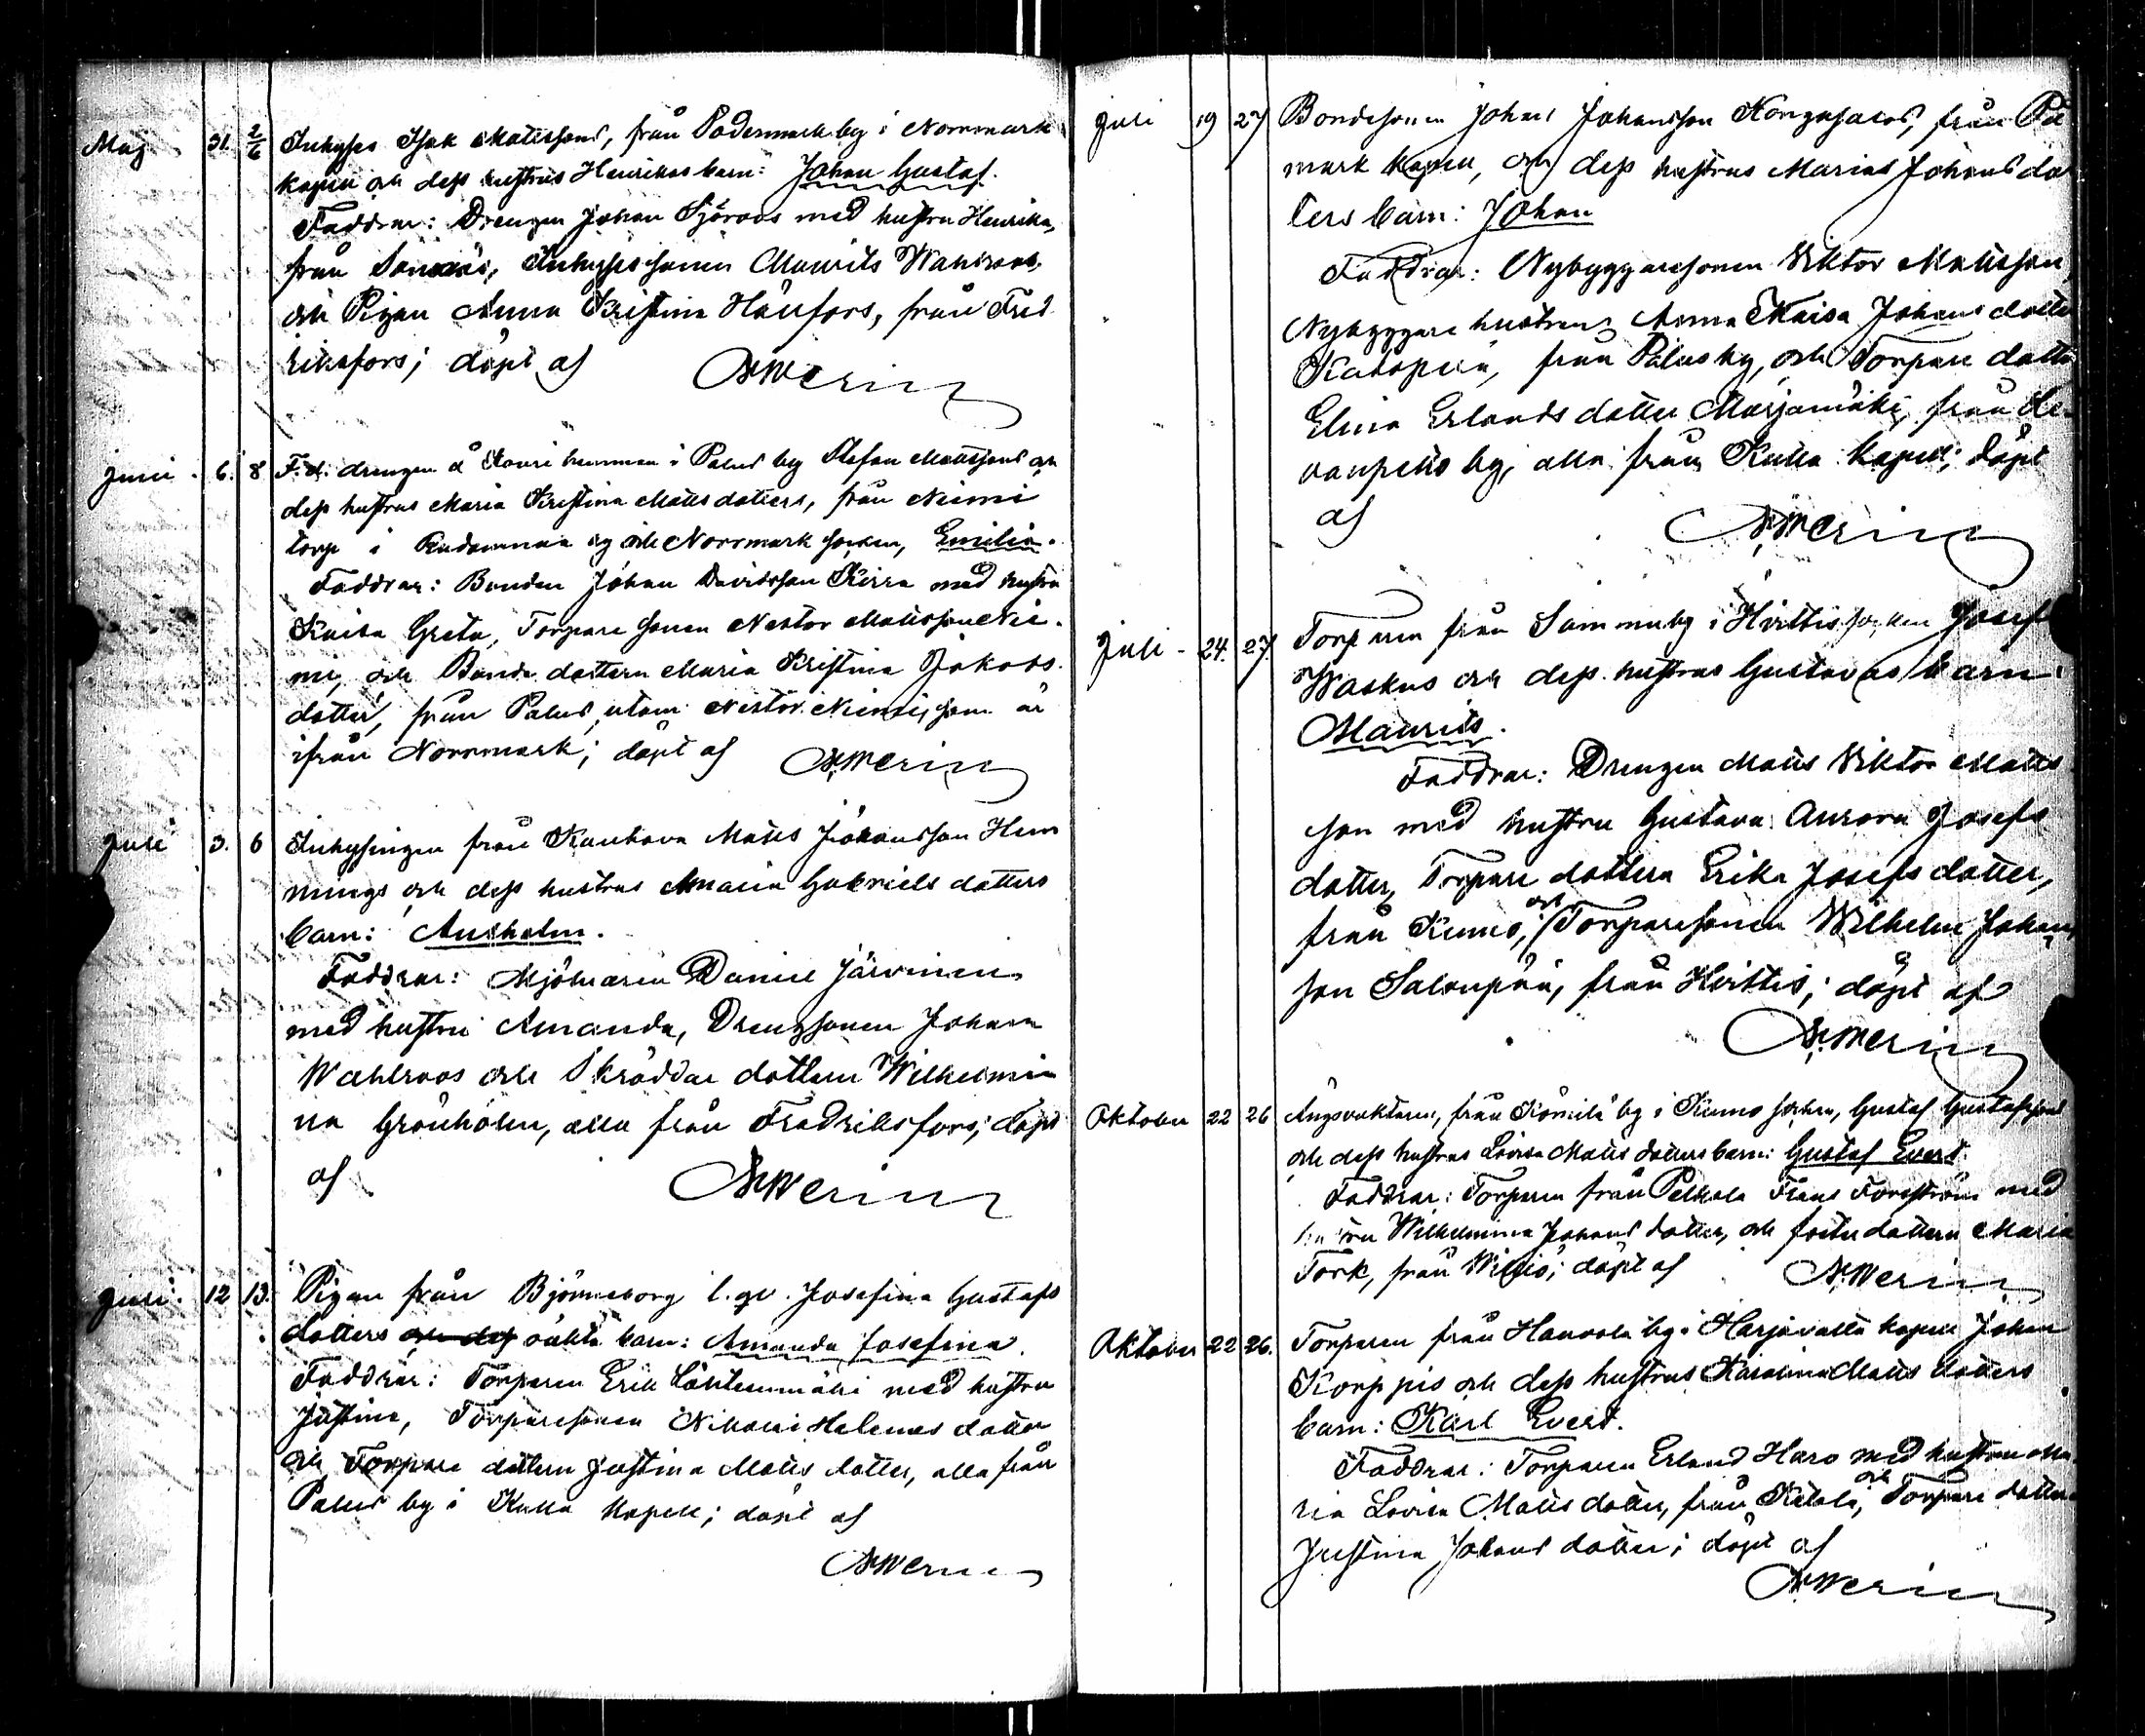 Maj 31. 2/6 Inhyses Isak Matissons, från Södermark by i Norrmark
kapell och dess hustrus Henrikas barn: Johan Gustaf.
Faddrar: Drengen Johan Sjöroos med hustru Henrika,
från, Inhysessonen Maurits Wahlroos,
och Pigan Anna Kristina Hänfors, från Fred
riksfors; döpt af
AWerin
Juni. 6. 8 F. d. drengen å hemman i Palus by Stefan Matissons och
dess hustrus Maria Kristina Matsdotters, från Niemi
torp i by och Norrmark socken, Emilia.
Faddrar: Bonden Johan Davidsson Kirra med hustru
Kaisa Greta, Torpare sonen Nestor Matisson Nie-
mi, och Bonde dottern Maria Kristina Jakobs
dotter, från Palus, utom Nestor Niemi, som är
ifrån Norrmark; döpt af AWerin
Juli 3. 6 Inhysingen från Kankava Matts Johansson Hem
mings och dess hustrus Maria Gabriels dotters
barn: Anshelm.
Faddrar: Mjölnaren Daniel Järvinen
med hustru Amanda, Drengsonen Johan
Wahlroos och Skräddar dottern Wilhelmi
na Grönholm, alla från Fredriksfors; döpt
af AWerin
Juli. 12 13. Pigan från Björneborg l. qv. Josefina Gustafs
dotters och dess oäkta barn: Amanda Josefina.
Faddrar: Torparen Erik Lähteenmäki med hustru
Justina, Torparesonen Nikolai Helenas dotter
och Torpare dottern Justina Matts dotter, alla från
Palus by i Kulla Kapell; döpt af
AWerin
Juli 19 27 Bondesonen Johan Johansson Kongasalos, från På
mark kapell, och dess hustrus Marias Johans dot
ters barn: Johan
Faddrar: Nybyggaresonen Viktor Matisson,
Nybyggare hustrun Anna Kaisa Johans dotter
Katopää, från Palus by, och Torpare dottern
Elina Erlands dotter Marjamäki, från Le-
vanpelto by, alla från Kulla kapell; döpt
af AWerin
Juli - 24. 27. Torparen från Sammuby i Hvittis socken Josef
Waskus och dess hustrus Gustavas barn:
Maurits.
Faddrar: Drengen Matts Viktor Matts
son med hustru Gustava Aurora Josefs
dotter, Torpare dottern Erika Josefs dotter,
från Kumo, och Torparesonen Wilhelm Johans
son Salonpää, från Hvittis; döpt af
AWerin
Oktober 22 26 Ängsvaktaren, från Kömilä by i Kumo socken, Gustaf Gustafssons
och dess hustrus Lovisa Matts dotters barn: Gustaf Evert.
Faddrar: Torparen från Pelkola Frans Forsström med
hustru Wilhelmina Johans dotter, och foster dottern Maria
Tork, från; döpt af AWerin
Oktober 22 26. Torparen från Hanvola by i Harjavalta kapell Johan
Korppis och dess hustrus Karolina Matts dotters
barn: Karl Evert.
Faddrar: Torparen Erland Haro med hustru Ma
ria Lovisa Matts dotter, från Kitola, och Torpare dottern
Justina Johans dotter; döpt af
AWerin